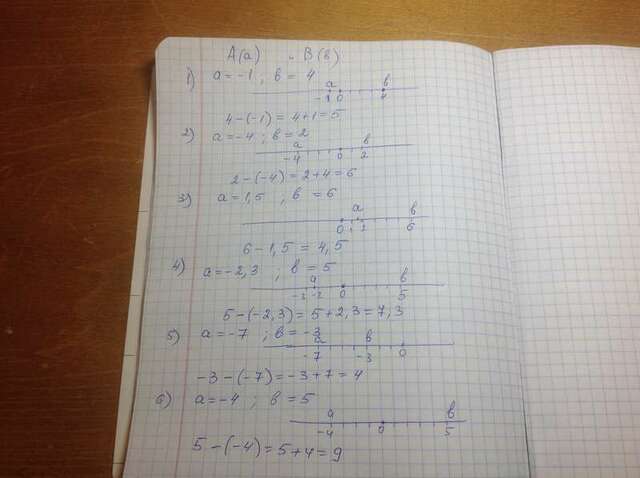 A(a) и B(в)
1) a = -1 ; в = 4
a в
-1 0 4
4-(-1) = 4+1 = 5
2) a = -4 ; в = 2
a в
-4 0 2
2-(-4) = 2+4 = 6
3) a = 1,5 ; в = 6
a в
0 1 2 6
6-1,5 = 4,5
4) a = -2,3 ; в = 5
a в
-3 -2 0 5
5-(-2,3) = 5+2,3 = 7,3
5) a = -7 ; в = -3
a в
-7 -3 0
-3-(-7) = -3+7 = 4
6) a = -4 ; в = 5
a в
-4 0 5
5-(-4) = 5+4 = 9